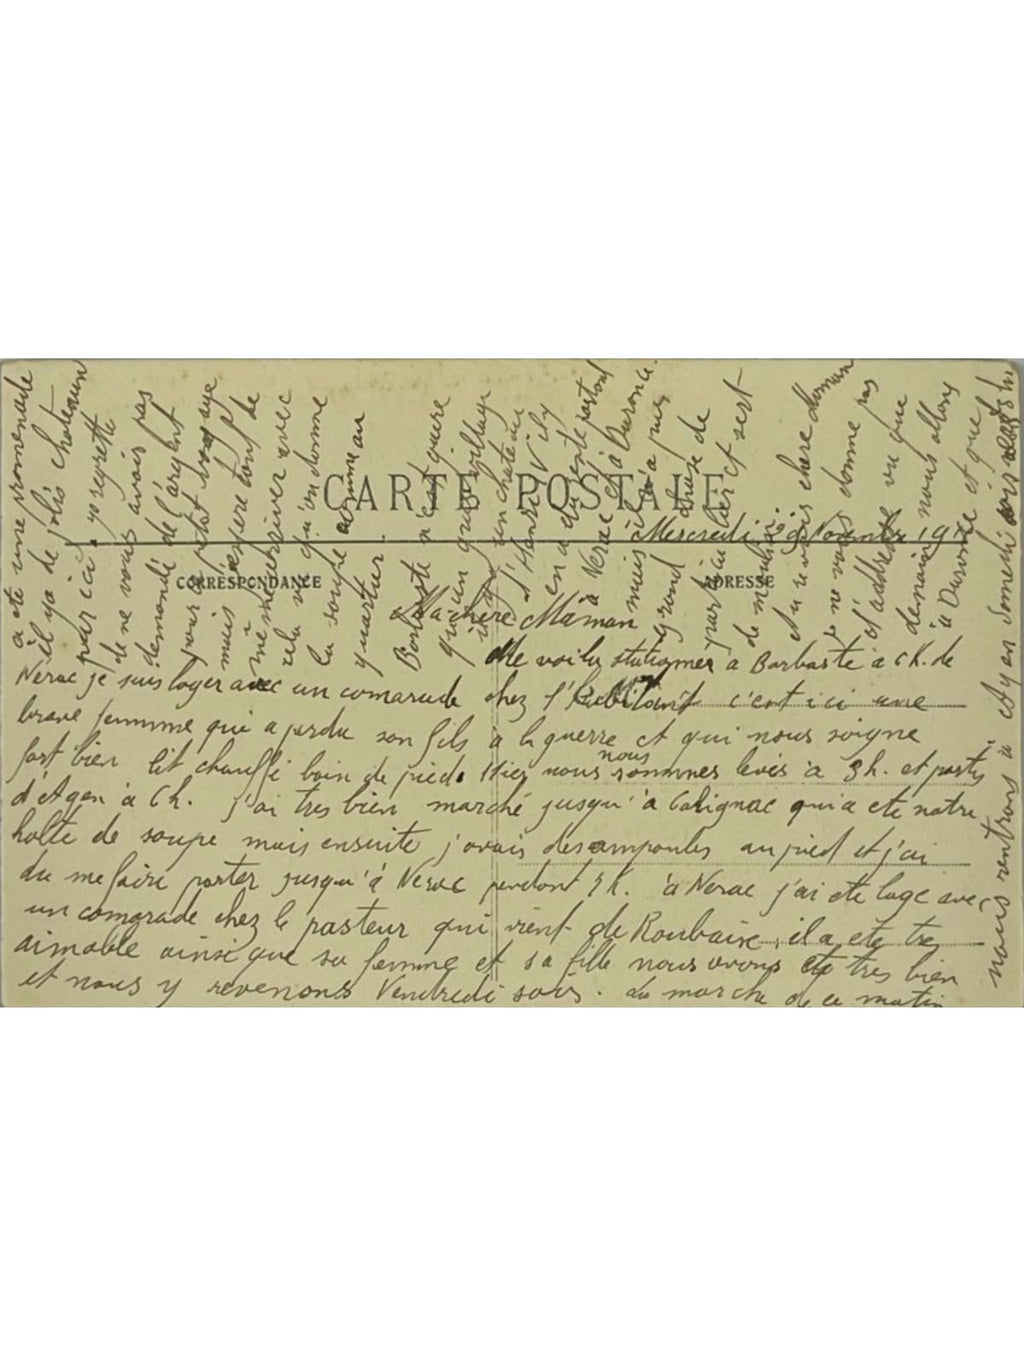 CARTE POSTALE
CORRESPONDANCE
ADRESSE
Mercredi Novembre 191
Ma chère Maman
Me voilu stationner a Barbaste a 6 K. de
Nerac je suis loger avec un camarade chez l'habitant c'est ici une
brave femmme qui a perdu son fils à la guerre et qui nous soigne
fort bien lit chauffé bain de pieds Hier nous nous sommes levés à 3 h. et partis
d'Agen à 6 h. j'ai tres bien marché jusqu'à Calignac qui a ete notre
halte de soupe mais ensuite j'avais des ampoules au pied et j'ai
du me faire porter jusqu'à Nerac pendant K. à Nerac j'ai ete loge avec
un camarade chez le pasteur qui vient de Roubaix, il a ete tres
aimable ainsi que sa femme et sa fille nous avons ete tres bien
et nous y revenons Vendredi soir. La marche de ce matin
a ete une promenade
il y a de jolis chateaux
par ici. je regrette
de ne vous avoir pas
demandé de l'argent
pour
mais j'espère tout de
même arriver avec
cela vu qu'on donne
la soupe comme au
quartier.
Barbaste n'est guère
qu'un grand village
un chateau
d'Henri IV il y
en a du reste partout
à Nerac et à Durance.
mais il n'a pas
grand chose de
particulier et sert
de
Au revoir chere Maman
je ne vous donne pas
d'addresse vu que
demain nous allons
à Durance et que
nous rentrons à Agen Samedi